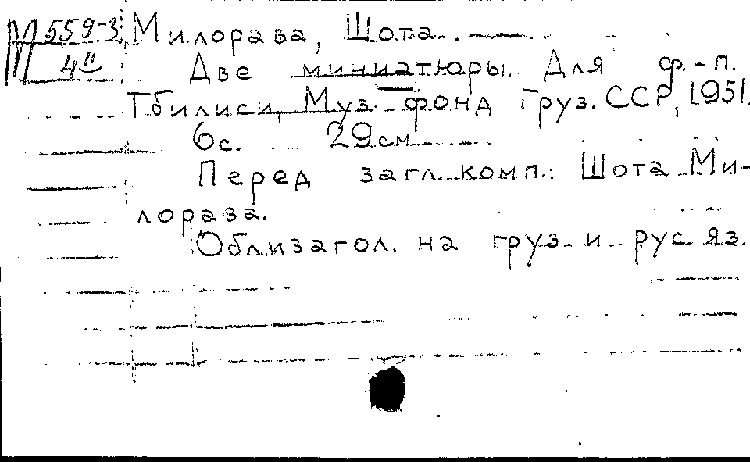 М 559-3 Милорава, Шота.
4" Две миниатюры. Для ф.-п.
Тбилиси, Муз. фонд Груз. ССР, 1951.
6с. 29см
Перед загл. комп.: Шота Ми-
лорава.
Обл. и загол. на груз. и рус. яз.